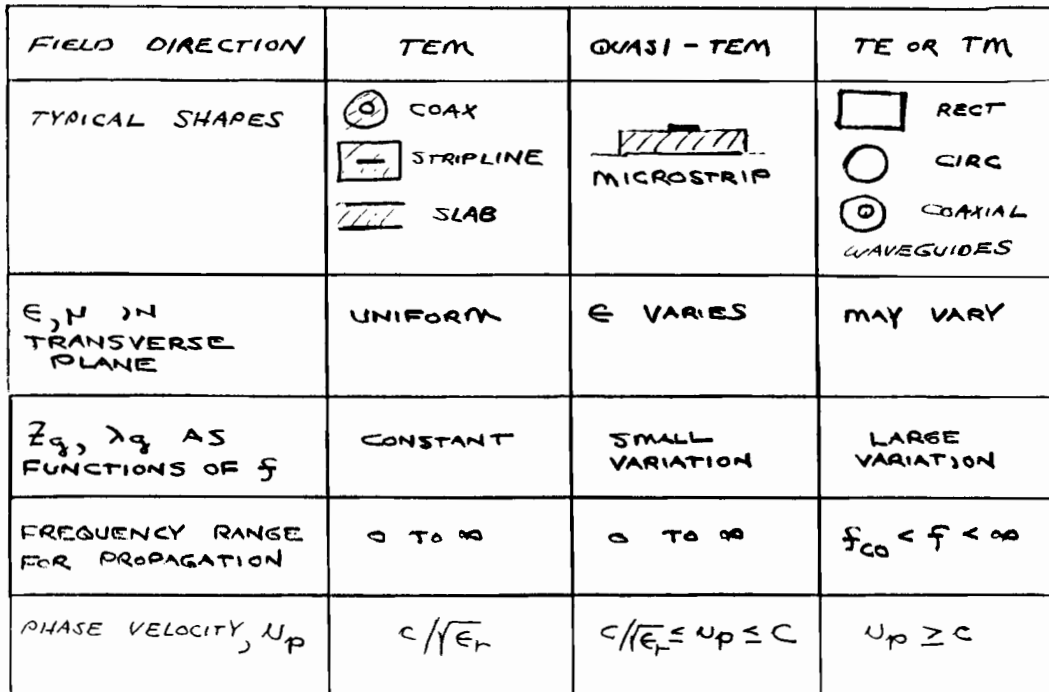 FIELD DIRECTION TEM QUASI-TEM TE OR TM
TYPICAL SHAPES
COAX
STRIPLINE
SLAB
MICROSTRIP
RECT
CIRC
COAXIAL
WAVEGUIDES
ϵ, μ IN
TRANSVERSE
PLANE
UNIFORM
ϵ VARIES
MAY VARY
Zg, λg AS
FUNCTIONS OF f
CONSTANT
SMALL
VARIATION
LARGE
VARIATION
FREQUENCY RANGE
FOR PROPAGATION
0 TO ∞
0 TO ∞
fco < f < ∞
PHASE VELOCITY, υp
c/√ϵr
c/√ϵr ≤ υp ≤ C
υp ≥ c